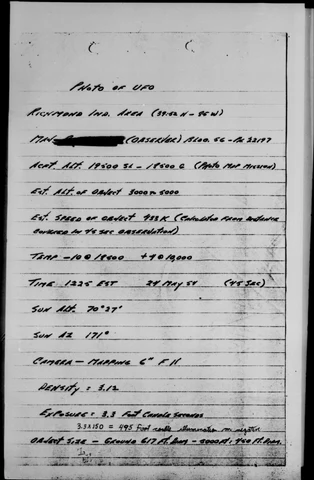 PHOTO OF UFO
RICHMOND IND. AREA (39:52 N - 85 W)
(OBSERVER) BLDG. 56 - PH 32197
ACFT ALT. 19500 SL - 18500 G (PHOTO MAP MISSION)
EST. ALT. OF OBJECT 3000 TO 5000
EST. SPEED OF OBJECT (CALCULATED FROM DISTANCE
COVERED IN 45 SEC OBSERVATION)
TEMP -10 @ 19500 +9 @ 10,000
TIME 1225 EST 24 MAY 54 (45 SEC)
SUN ALT. 70° 27'
SUN AZ 171°
CAMERA - MAPPING 6" F
DENSITY = 3.12
EXPOSURE = 3.3 FOOT CANDLE SECONDS
3.3 X 150 = 495 Foot candle on
OBJECT SIZE - GROUND 617 FT. DIAM - FT.